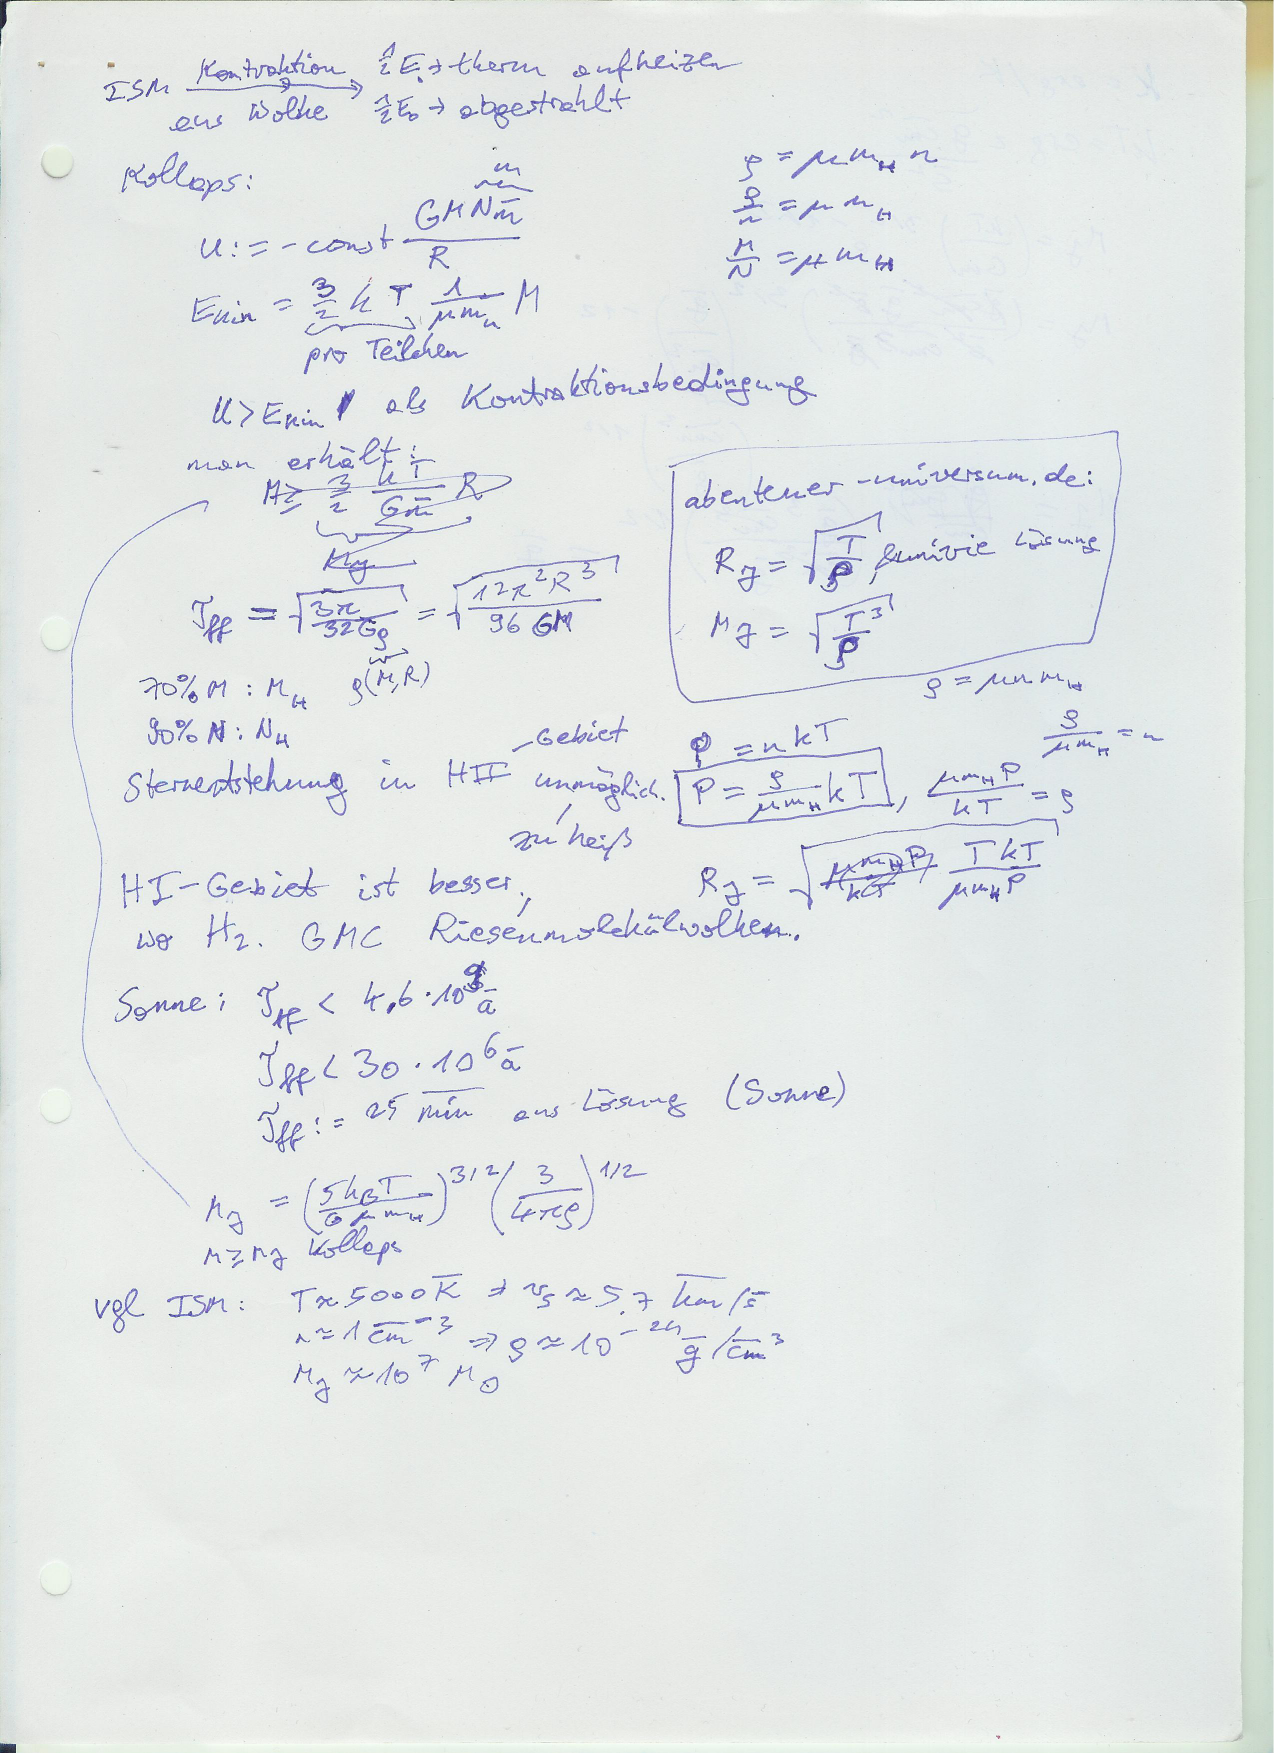 ISM Kontraktion aus Wolke → 1/2 E₀ → therm aufheizen
1/2 E₀ → abgestrahlt
Kollaps:
U := -const GMN m̅ / R
ρ = μ m_H n
ρ/n = μ m_H
M/N = μ m_H
E_kin = 3/2 k T 1/(μ m_H) M
pro Teilchen
U > E_kin als Kontraktionsbedingung
man erhält:
M ≥ 3/2 kT/(G m̅) R
M_J
τ_ff = √(3π/(32Gρ)) = √(12π²R³/(96 GM))
ρ(M,R)
70% M : M_H
90% N : N_H
abenteuer-universum.de:
R_J = √(T/ρ), univie Lösung
M_J = √(T³/ρ)
ρ = μ n m_H
ρ/(μ m_H) = n
Sternentstehung in HII-Gebiet unmöglich.
zu heiß
P = nkT
P = ρ/(μ m_H) kT, μ m_H P/(kT) = ρ
R_J = √(T kT/(μ m_H P))
HI-Gebiet ist besser,
wo H₂. GMC Riesenmolekülwolken.
Sonne: τ_ff < 4,6·10⁹ a̅
τ_ff < 30·10⁶ a̅
τ_ff := 25 min aus Lösung (Sonne)
M_J = (5 k_B T/(G μ m_H))^3/2 (3/(4πρ))^1/2
M ≥ M_J Kollaps
vgl ISM: T ≈ 5000 K̅ → v_s ≈ 5,7 km/s̅
n ≈ 1 cm⁻³ ⇒ ρ ≈ 10⁻²⁴ g̅/cm³
M_J ≈ 10⁷ M_⊙